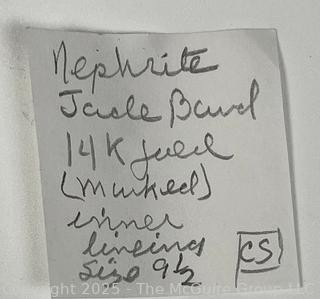 Nephrite
Jade Band
14K gold
(marked)
inner
lining
Size 9½
CS
Copyright 2025 - The McGuire Group LLC